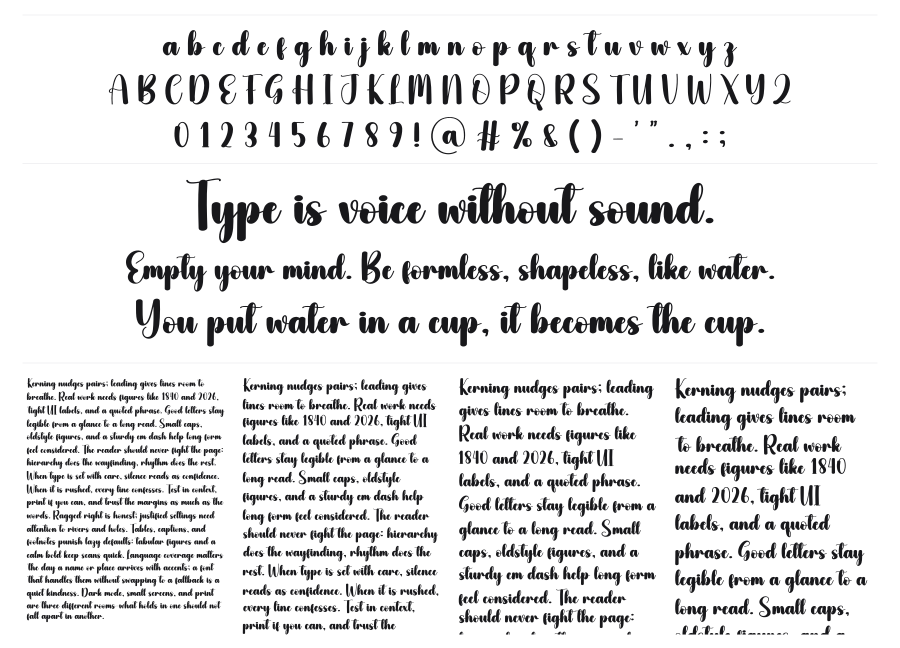 a b c d e f g h i j k l m n o p q r s t u v w x y z
A B C D E F G H I J K L M N O P Q R S T U V W X Y Z
0 1 2 3 4 5 6 7 8 9 ! @ # % & ( ) - ' " . , : ;
Type is voice without sound.
Empty your mind. Be formless, shapeless, like water.
You put water in a cup, it becomes the cup.
Kerning nudges pairs; leading gives lines room to
breathe. Real work needs figures like 1840 and 2026,
tight UI labels, and a quoted phrase. Good letters stay
legible from a glance to a long read. Small caps,
oldstyle figures, and a sturdy em dash help long form
feel considered. The reader should never fight the page:
hierarchy does the wayfinding, rhythm does the rest.
When type is set with care, silence reads as confidence.
When it is rushed, every line confesses. Test in context,
print if you can, and trust the margins as much as the
words. Ragged right is honest; justified settings need
attention to rivers and holes. Tables, captions, and
footnotes punish lazy defaults: tabular figures and a
calm bold keep scans quick. Language coverage matters
the day a name or place arrives with accents; a font
that handles them without swapping to a fallback is a
quiet kindness. Dark mode, small screens, and print
are three different rooms what holds in one should not
fall apart in another.
Kerning nudges pairs; leading gives
lines room to breathe. Real work needs
figures like 1840 and 2026, tight UI
labels, and a quoted phrase. Good
letters stay legible from a glance to a
long read. Small caps, oldstyle
figures, and a sturdy em dash help
long form feel considered. The reader
should never fight the page: hierarchy
does the wayfinding, rhythm does the
rest. When type is set with care, silence
reads as confidence. When it is rushed,
every line confesses. Test in context,
print if you can, and trust the
Kerning nudges pairs; leading
gives lines room to breathe.
Real work needs figures like
1840 and 2026, tight UI
labels, and a quoted phrase.
Good letters stay legible from a
glance to a long read. Small
caps, oldstyle figures, and a
sturdy em dash help long form
feel considered. The reader
should never fight the page:
Kerning nudges pairs;
leading gives lines room
to breathe. Real work
needs figures like 1840
and 2026, tight UI
labels, and a quoted
phrase. Good letters stay
legible from a glance to a
long read. Small caps,
oldstyle figures, and a